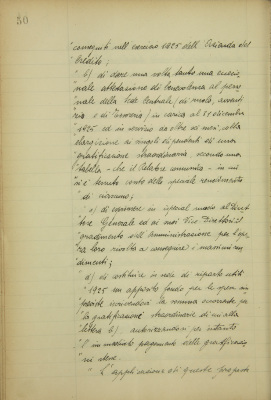 30
conseguiti nell'esercizio 1925 dall'Azienda del
Credito;
" b) di dare una volta tanto una eccezio-
nale attestazione di benevolenza al perso-
nale della Sede Centrale (di ruolo, avventi-
zio e di ) in carica al 31 dicembre
1925 ed in servizio da oltre sei mesi, colla
elargizione ai singoli dipendenti di una
gratificazione straordinaria, secondo una
tabella - che il Relatore comunica - in cui
si è tenuto conto dello speciale rendimento
di ciascuno;
" c) di esprimere in ispecial modo al Diret-
tore Generale ed ai suoi Vice Direttori il
gradimento dell'Amministrazione per l'ope-
ra loro rivolta a conseguire i massimi ren-
dimenti;
" d) di costituire in sede di riparto utili
" 1925 un apposito fondo per le spese im-
previste iscrivendovi la somma occorrente per
la gratificazione straordinaria di cui alla
lettera b), autorizzandosi per intanto
l'immediato pagamento delle gratificazio-
ni stesse.
" L'applicazione di queste proposte